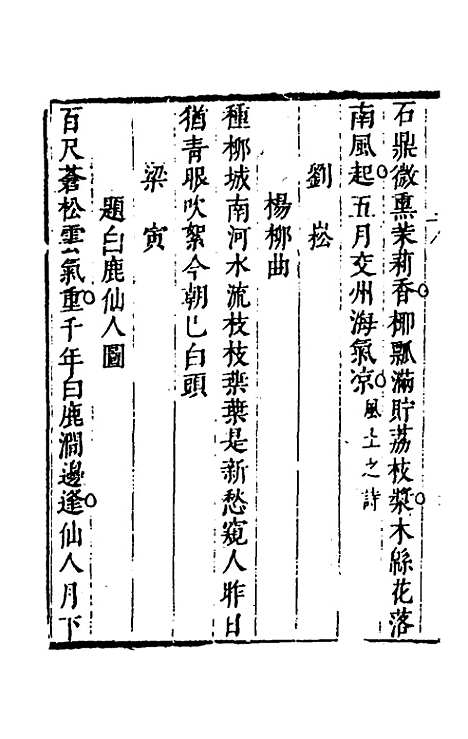 石鼎微熏茉莉香椰瓢滿貯荔枝漿木綿花落
南風起五月交州海氣凉風土之詩
劉崧
楊柳曲
種柳城南河水流枝枝葉葉是新愁窺人昨日
猶青眼吹絮今朝已白頭
梁寅
題白鹿仙人圖
百尺蒼松雲氣重千年白鹿澗邊逢仙人月下